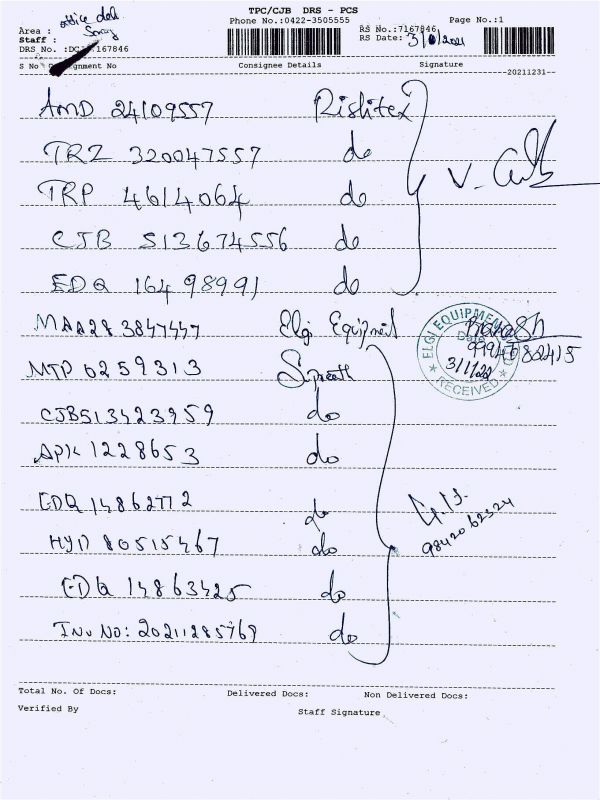 TPC/CJB DRS - PCS
Phone No.:0422-3505555 Page No.:1
office del.
Area :
Staff :
DRS No. :DC 167846
RS No.:7167846
RS Date:
S No gnment No Consignee Details Signature
20211231
AMD 24109557
TRZ 320047557 do
TRP 4614064 do
CJB 513674556 do
EDQ 16498991 do
MAA283847447 Elgi Equipment
MTP 0259313
CJB513423959 do
APK 1228653 do
EDQ 14862772 do
HYD 80515467 do
EDQ 14863425 do
Inv No: 20211285769 do
V.
ELGI EQUIPMEN
Date
RECEIVED
9842062324
Total No. Of Docs: Delivered Docs: Non Delivered Docs:
Verified By Staff Signature